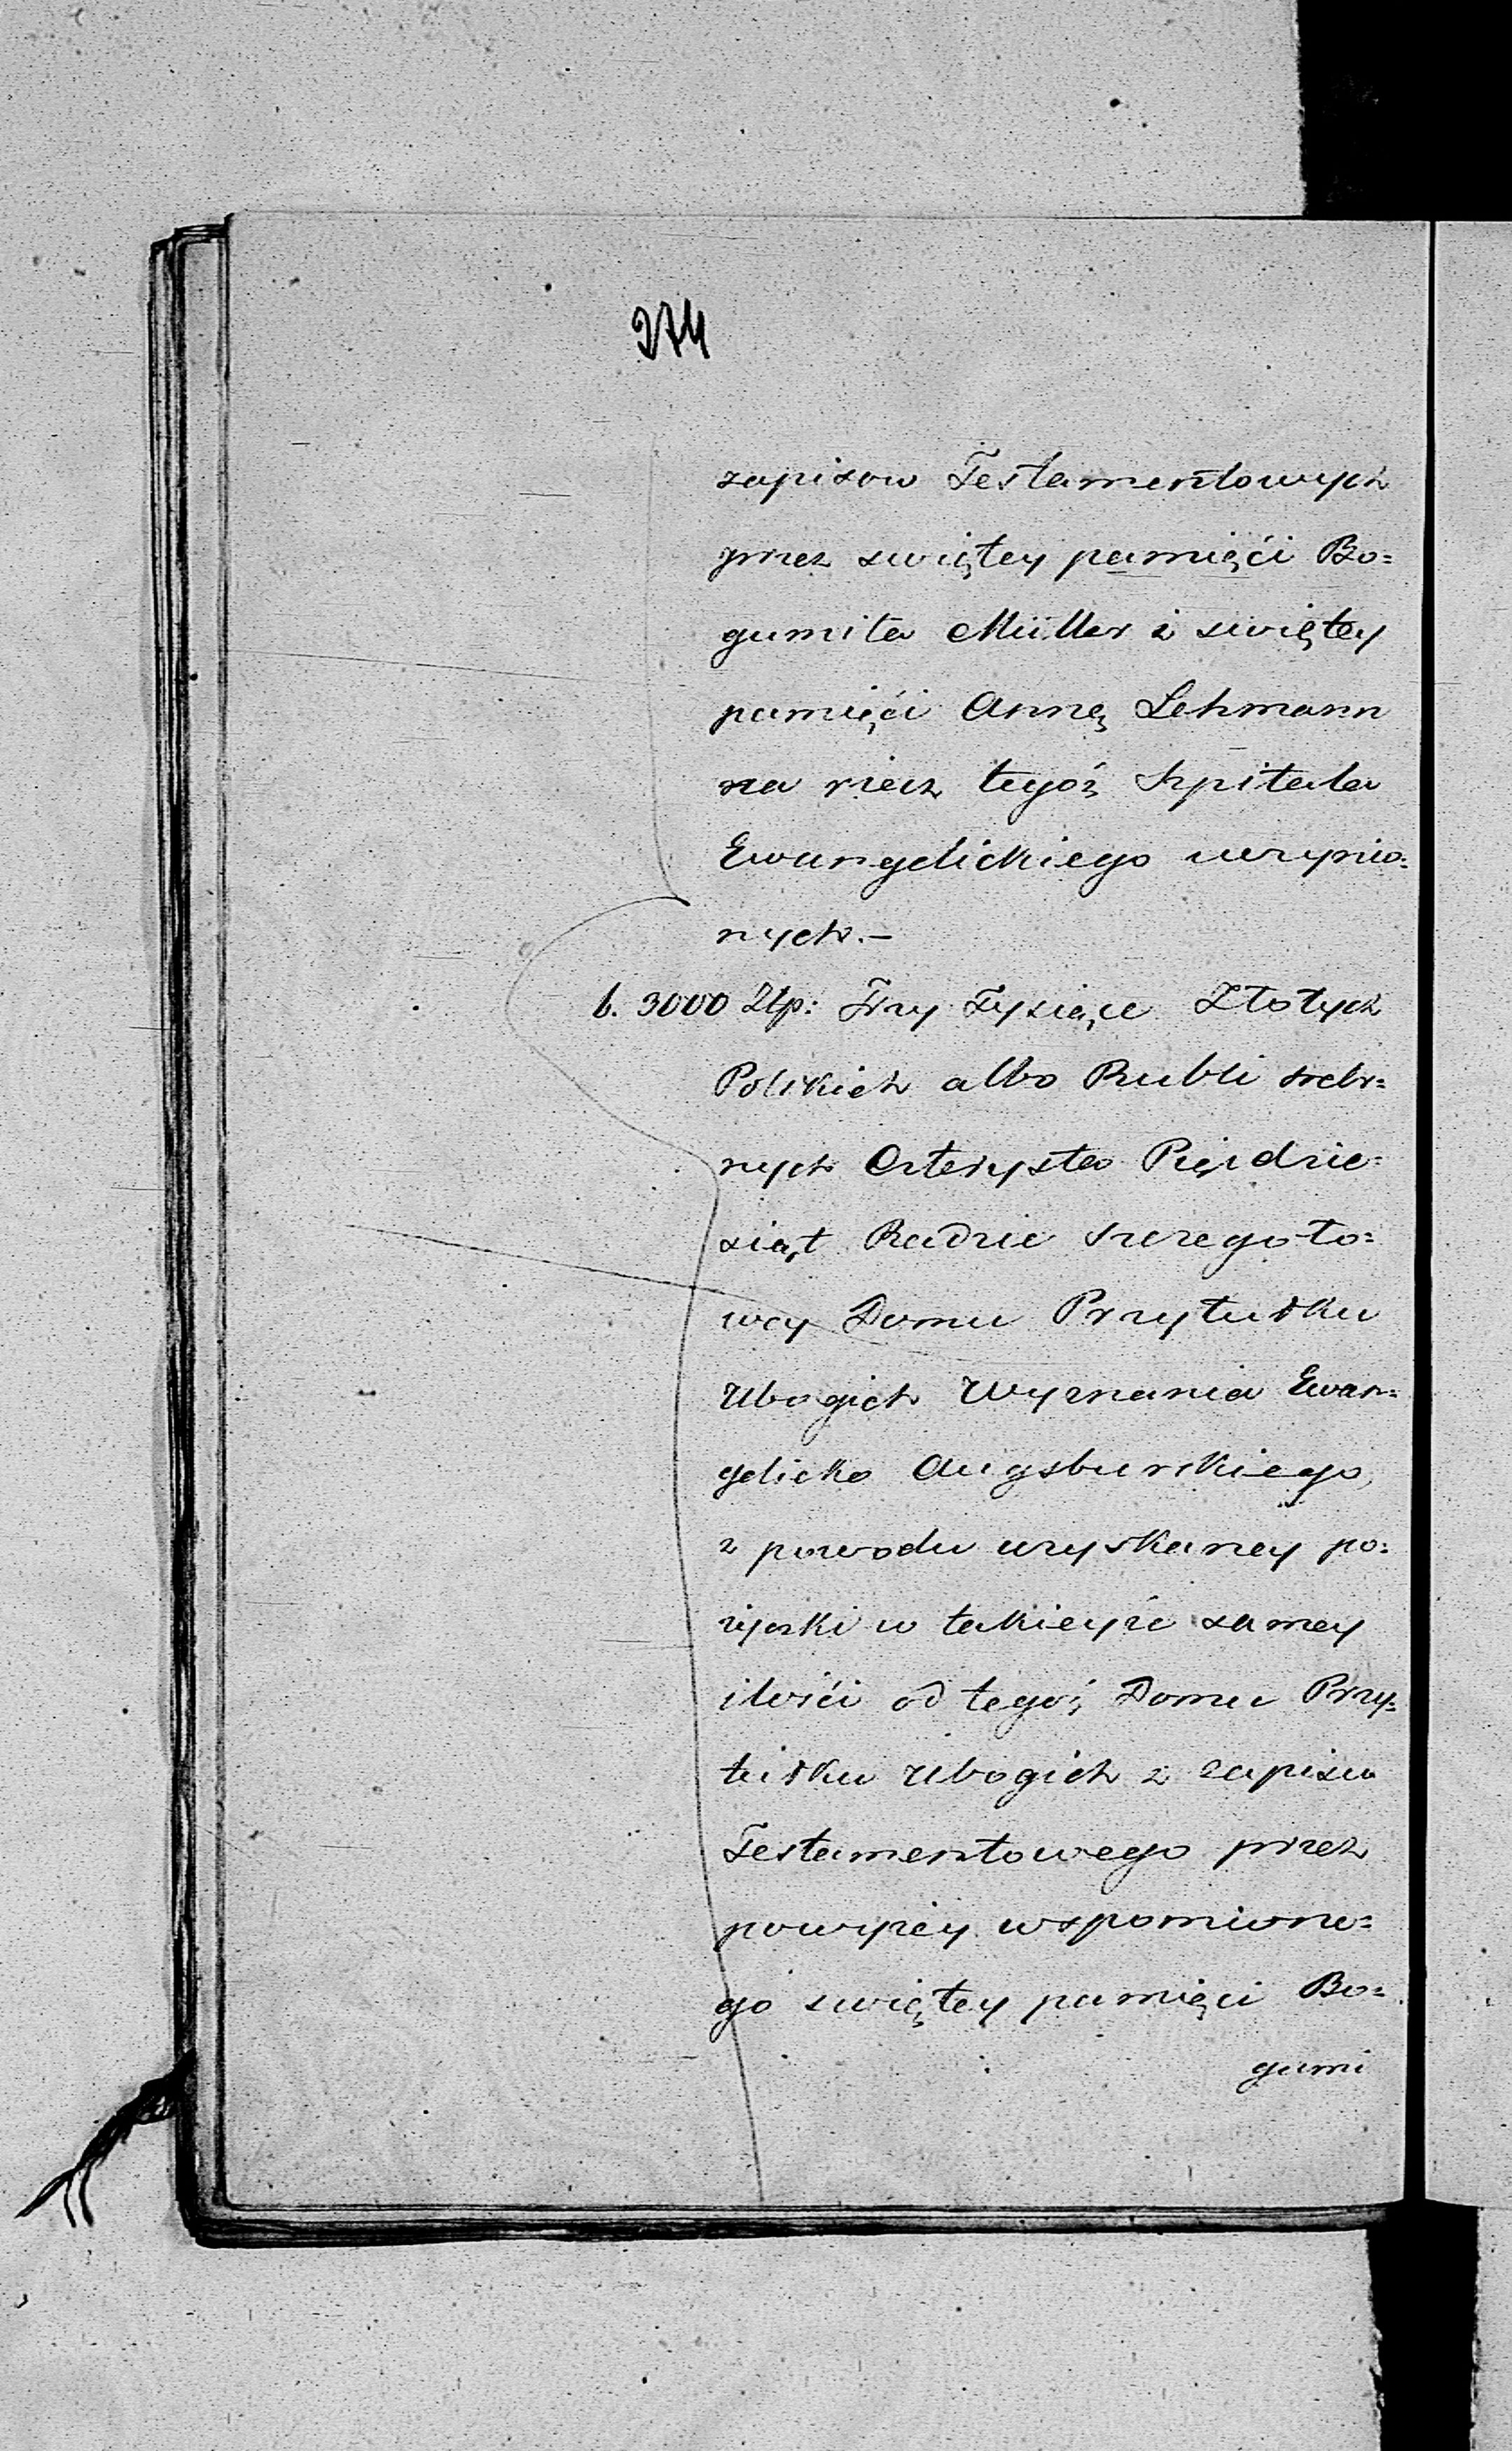 274
zapisow Testamentowych
przez swiętey pamięći Bo=
gumiła Müller i swiętey
pamięći Annę Lehmann
na rzecz tegoż Szpitala
Ewangelickiego uczynio=
nych.—
b. 3000 Złp: Trzy Tysiące Złotych
Polskich albo Rubli srebr=
nych Czterysta Pięćdzie=
siąt Radzie szczegóło=
wey Domu Przytułku
Ubogich Wyznania Ewan=
gelicko Augsburskiego,
z powodu uzyskaney po=
życzki w takieyże samey
ilośći od tegoż Domu Przy=
tułku Ubogich z zapisu
Testamentowego przez
powyżey wspomione=
go swiętey pamięci Bo=
gumi